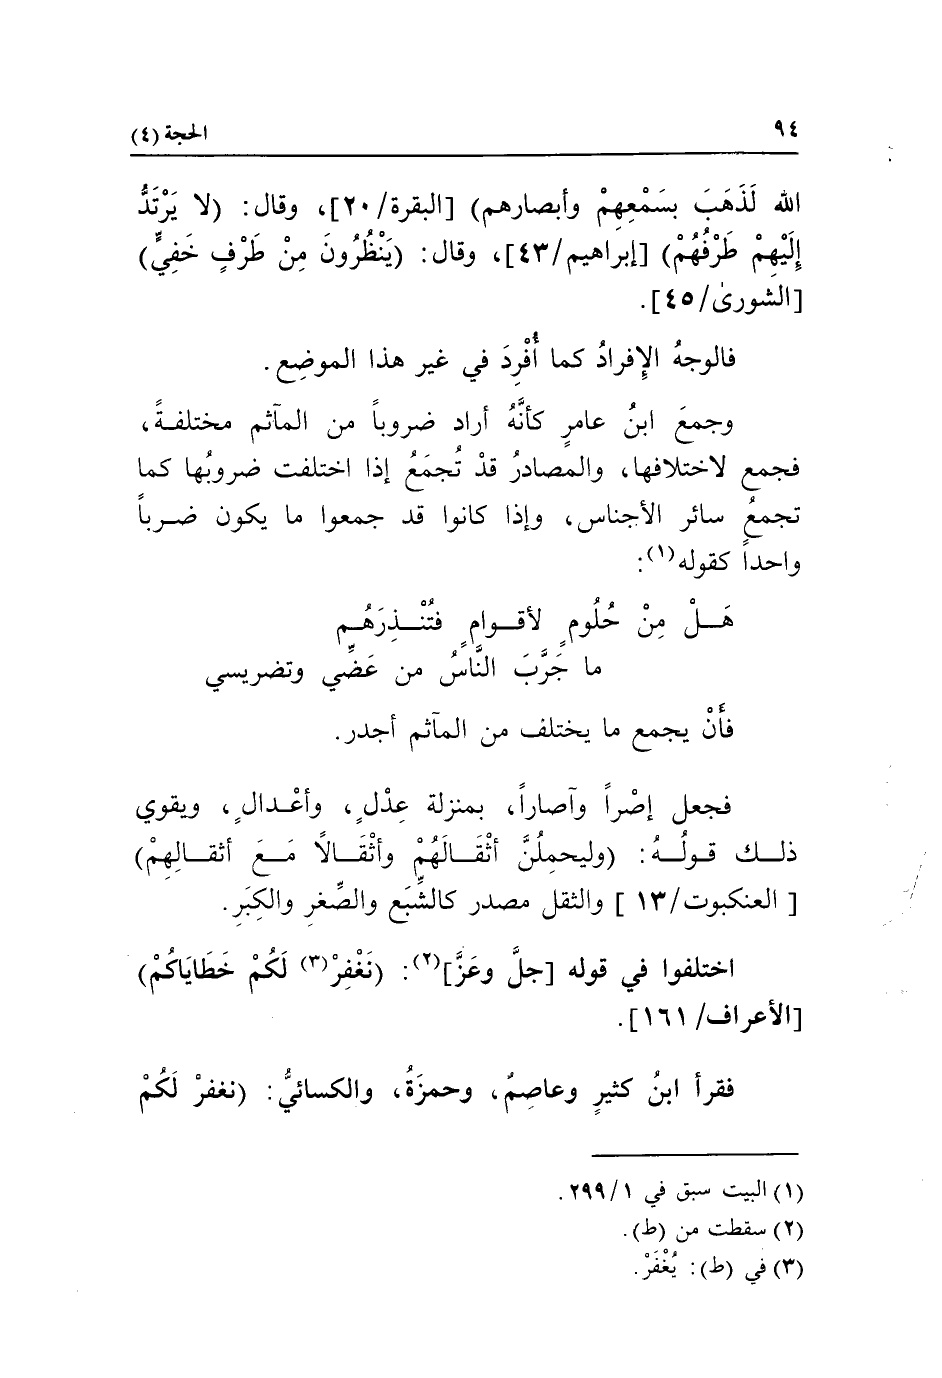 ٩٤ الحجة (٤)
الله لَذَهَبَ بسَمْعِهِمْ وأبصارهم) [البقرة/٢٠]، وقال: (لا يَرْتَدُّ
إِلَيْهِمْ طَرْفُهُمْ) [إبراهيم/٤٣]، وقال: (يَنْظُرُونَ مِنْ طَرْفٍ خَفِيٍّ)
[الشورىٰ/٤٥].
فالوجهُ الإِفرادُ كما أُفْرِدَ في غير هذا الموضِع.
وجمعَ ابنُ عامرٍ كأنَّهُ أراد ضروباً من المآثم مختلفةً،
فجمع لاختلافها، والمصادرُ قدْ تُجمَعُ إذا اختلفت ضروبُها كما
تجمعُ سائر الأجناس، وإذا كانوا قد جمعوا ما يكون ضرباً
واحداً كقوله(١):
هَلْ مِنْ حُلُومٍ لأقوامٍ فتُنْذِرَهُم
ما جَرَّبَ النَّاسُ من عَضِّي وتضريسي
فأَنْ يجمع ما يختلف من المآثم أجدر.
فجعل إصْراً وآصاراً، بمنزلة عِدْلٍ، وأعْدالٍ، ويقوي
ذلك قولُهُ: (وليحمِلُنَّ أثْقَالَهُمْ وأثْقَالاً مَعَ أثقالِهِمْ)
[ العنكبوت/١٣ ] والثقل مصدر كالشِّبَع والصِّغر والكِبَر.
اختلفوا في قوله [جلَّ وعَزَّ](٢): (نَغْفِرْ(٣) لَكُمْ خَطَايَاكُمْ)
[الأعراف/ ١٦١].
فقرأ ابنُ كثيرٍ وعاصِمٌ، وحمزَةُ، والكسائيُّ: (نغفرْ لَكُمْ
(١) البيت سبق في ٢٩٩/١.
(٢) سقطت من (ط).
(٣) في (ط): يُغْفَرْ.